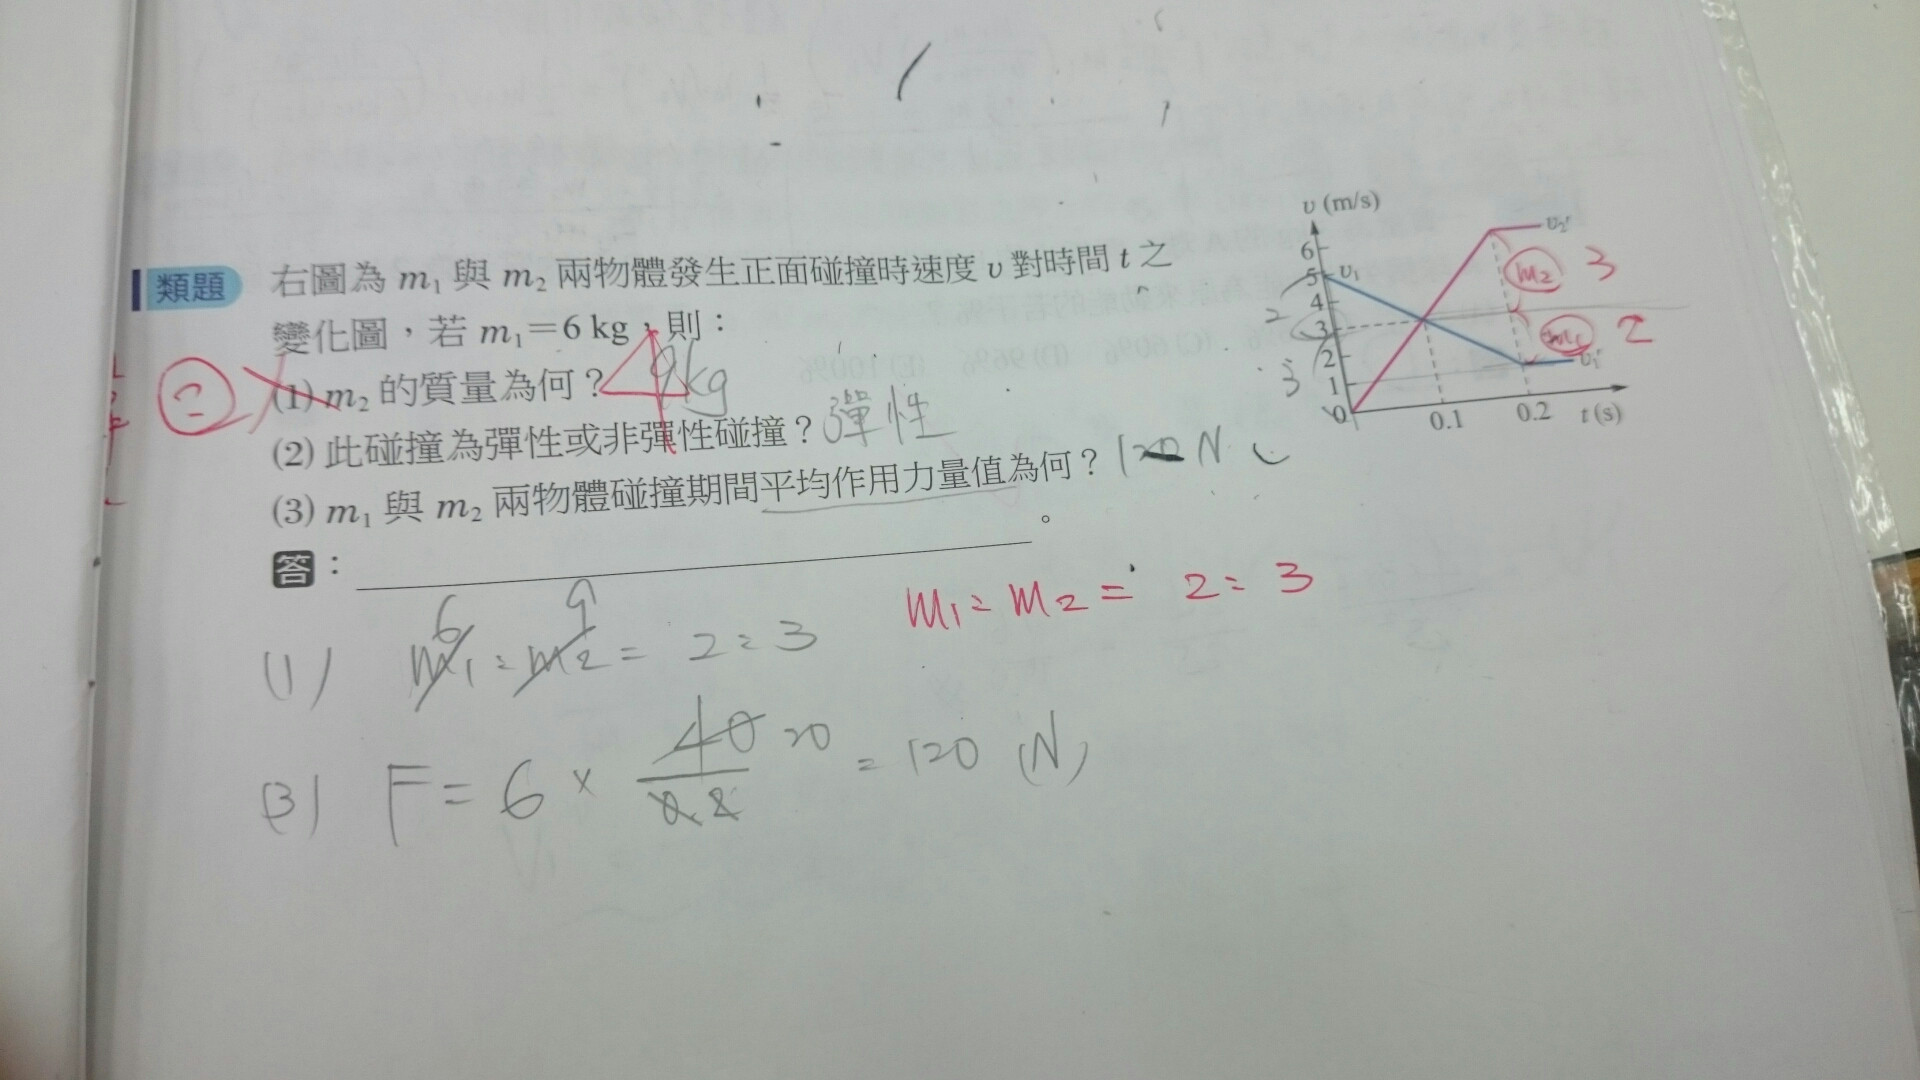 類題 右圖為 m₁ 與 m₂ 兩物體發生正面碰撞時速度 υ 對時間 t 之
變化圖，若 m₁＝6 kg，則：
(1) m₂ 的質量為何？ 9kg
(2) 此碰撞為彈性或非彈性碰撞？ 彈性
(3) m₁ 與 m₂ 兩物體碰撞期間平均作用力量值為何？ 120 N
。
答：
υ (m/s)
6
5
4
3
2
1
0
υ₁
υ₂'
υ₁'
0.1
0.2
t (s)
m₂ 3
m₁ 2
2
3
m₁ : m₂ = 2 : 3
6 9
(1) m₁ : m₂ = 2 : 3
(3) F = 6 × 40/0.2 20 = 120 (N)